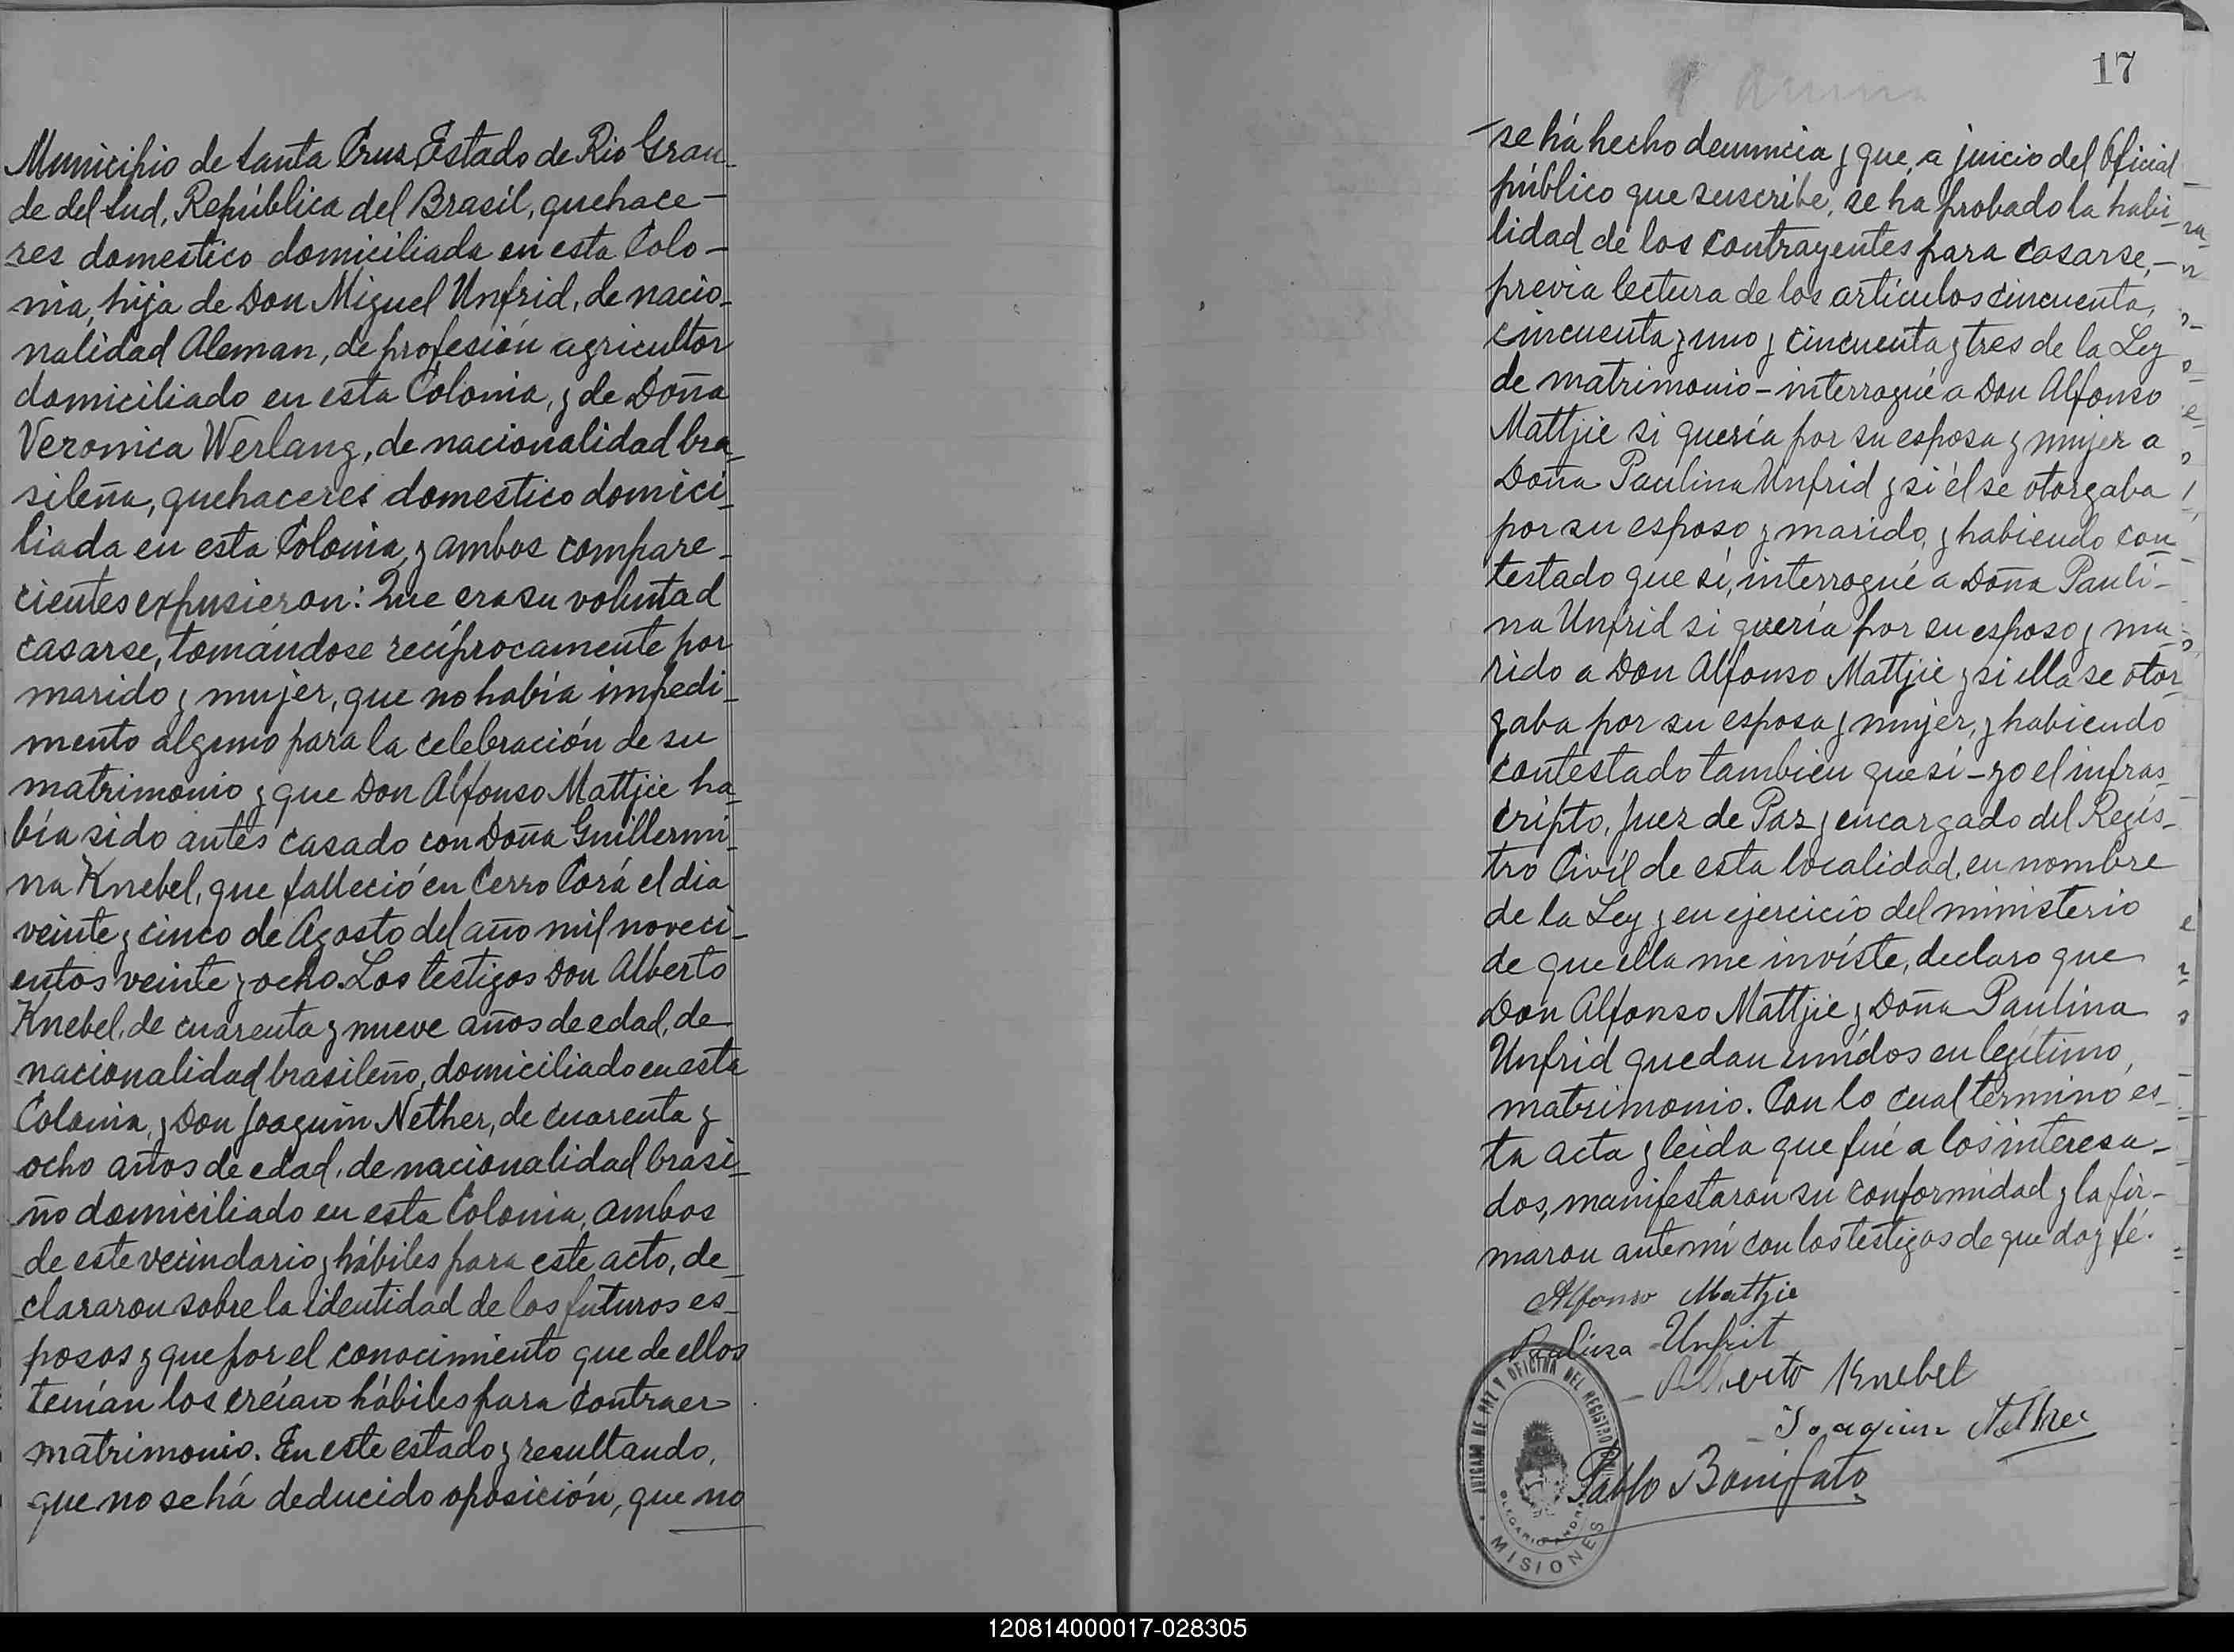 Municipio de Santa Cruz Estado de Rio Gran-
de del Sud, República del Brasil, quehace-
res domestico domiciliada en esta Colo-
nia, hija de Don Miguel Unfrid, de nacio-
nalidad Aleman, de profesión agricultor
domiciliado en esta Colonia, y de Doña
Veronica Werlang, de nacionalidad bra-
sileña, quehaceres domestico domici-
liada en esta Colonia, y ambos compare-
cientes expusieron: Que era su voluntad
casarse, tomándose recíprocamente por
marido y mujer, que no había impedi-
mento alguno para la celebración de su
matrimonio y que Don Alfonso Mattjie ha-
bía sido antes casado con Doña Guillermi-
na Knebel, que falleció en Cerro Corá el dia
veinte y cinco de Agosto del año mil noveci-
entos veinte y ocho. Los testigos Don Alberto
Knebel, de cuarenta y nueve años de edad, de
nacionalidad brasileño, domiciliado en esta
Colonia, y Don Joaquin Nether, de cuarenta y
ocho años de edad, de nacionalidad brasi-
ño domiciliado en esta Colonia, ambos
de este vecindario y hábiles para este acto, de-
clararon sobre la identidad de los futuros es-
posos y que por el conocimiento que de ellos
tenían los creían hábiles para contraer
matrimonio. En este estado y resultando,
que no se há deducido oposición, que no
17
se há hecho denuncia y que, a juicio del Oficial
público que suscribe, se ha probado la habi-
lidad de los contrayentes para casarse,-
previa lectura de los artículos cincuenta,
cincuenta y uno y cincuenta y tres de la Ley
de matrimonio - interrogué a Don Alfonso
Mattjie si quería por su esposa y mujer a
Doña Paulina Unfrid y si él se otorgaba
por su esposo y marido, y habiendo con
testado que sí, interrogué a Doña Pauli-
na Unfrid si quería por su esposo y ma-
rido a Don Alfonso Mattjie y si ella se otor-
gaba por su esposa y mujer, y habiendo
contestado tambien que sí - yo el infras-
cripto, Juez de Paz y encargado del Regis-
tro Civíl de esta localidad, en nombre
de la Ley y en ejercicio del ministerio
de que ella me invíste, declaro que
Don Alfonso Mattjie y Doña Paulina
Unfrid quedan unídos en legítimo
matrimonio. Con lo cual terminó es-
ta acta y leida que fué a los interesa-
dos, manifestaron su conformidad y la fir-
maron ante mí con los testigos de que doy fé.
Alfonso Mattjie
Paulina Unfrit
Alberto Knebel
Joaquin Nether
Pablo Bonifato
JUZGADO DE PAZ Y OFICINA DEL REGISTRO CIVIL
MISIONES
120814000017-028305